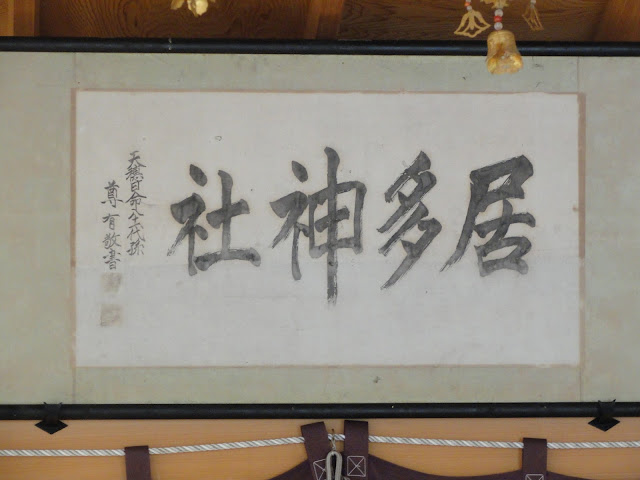 居多神社
天穂日命代孫
尊有敬書